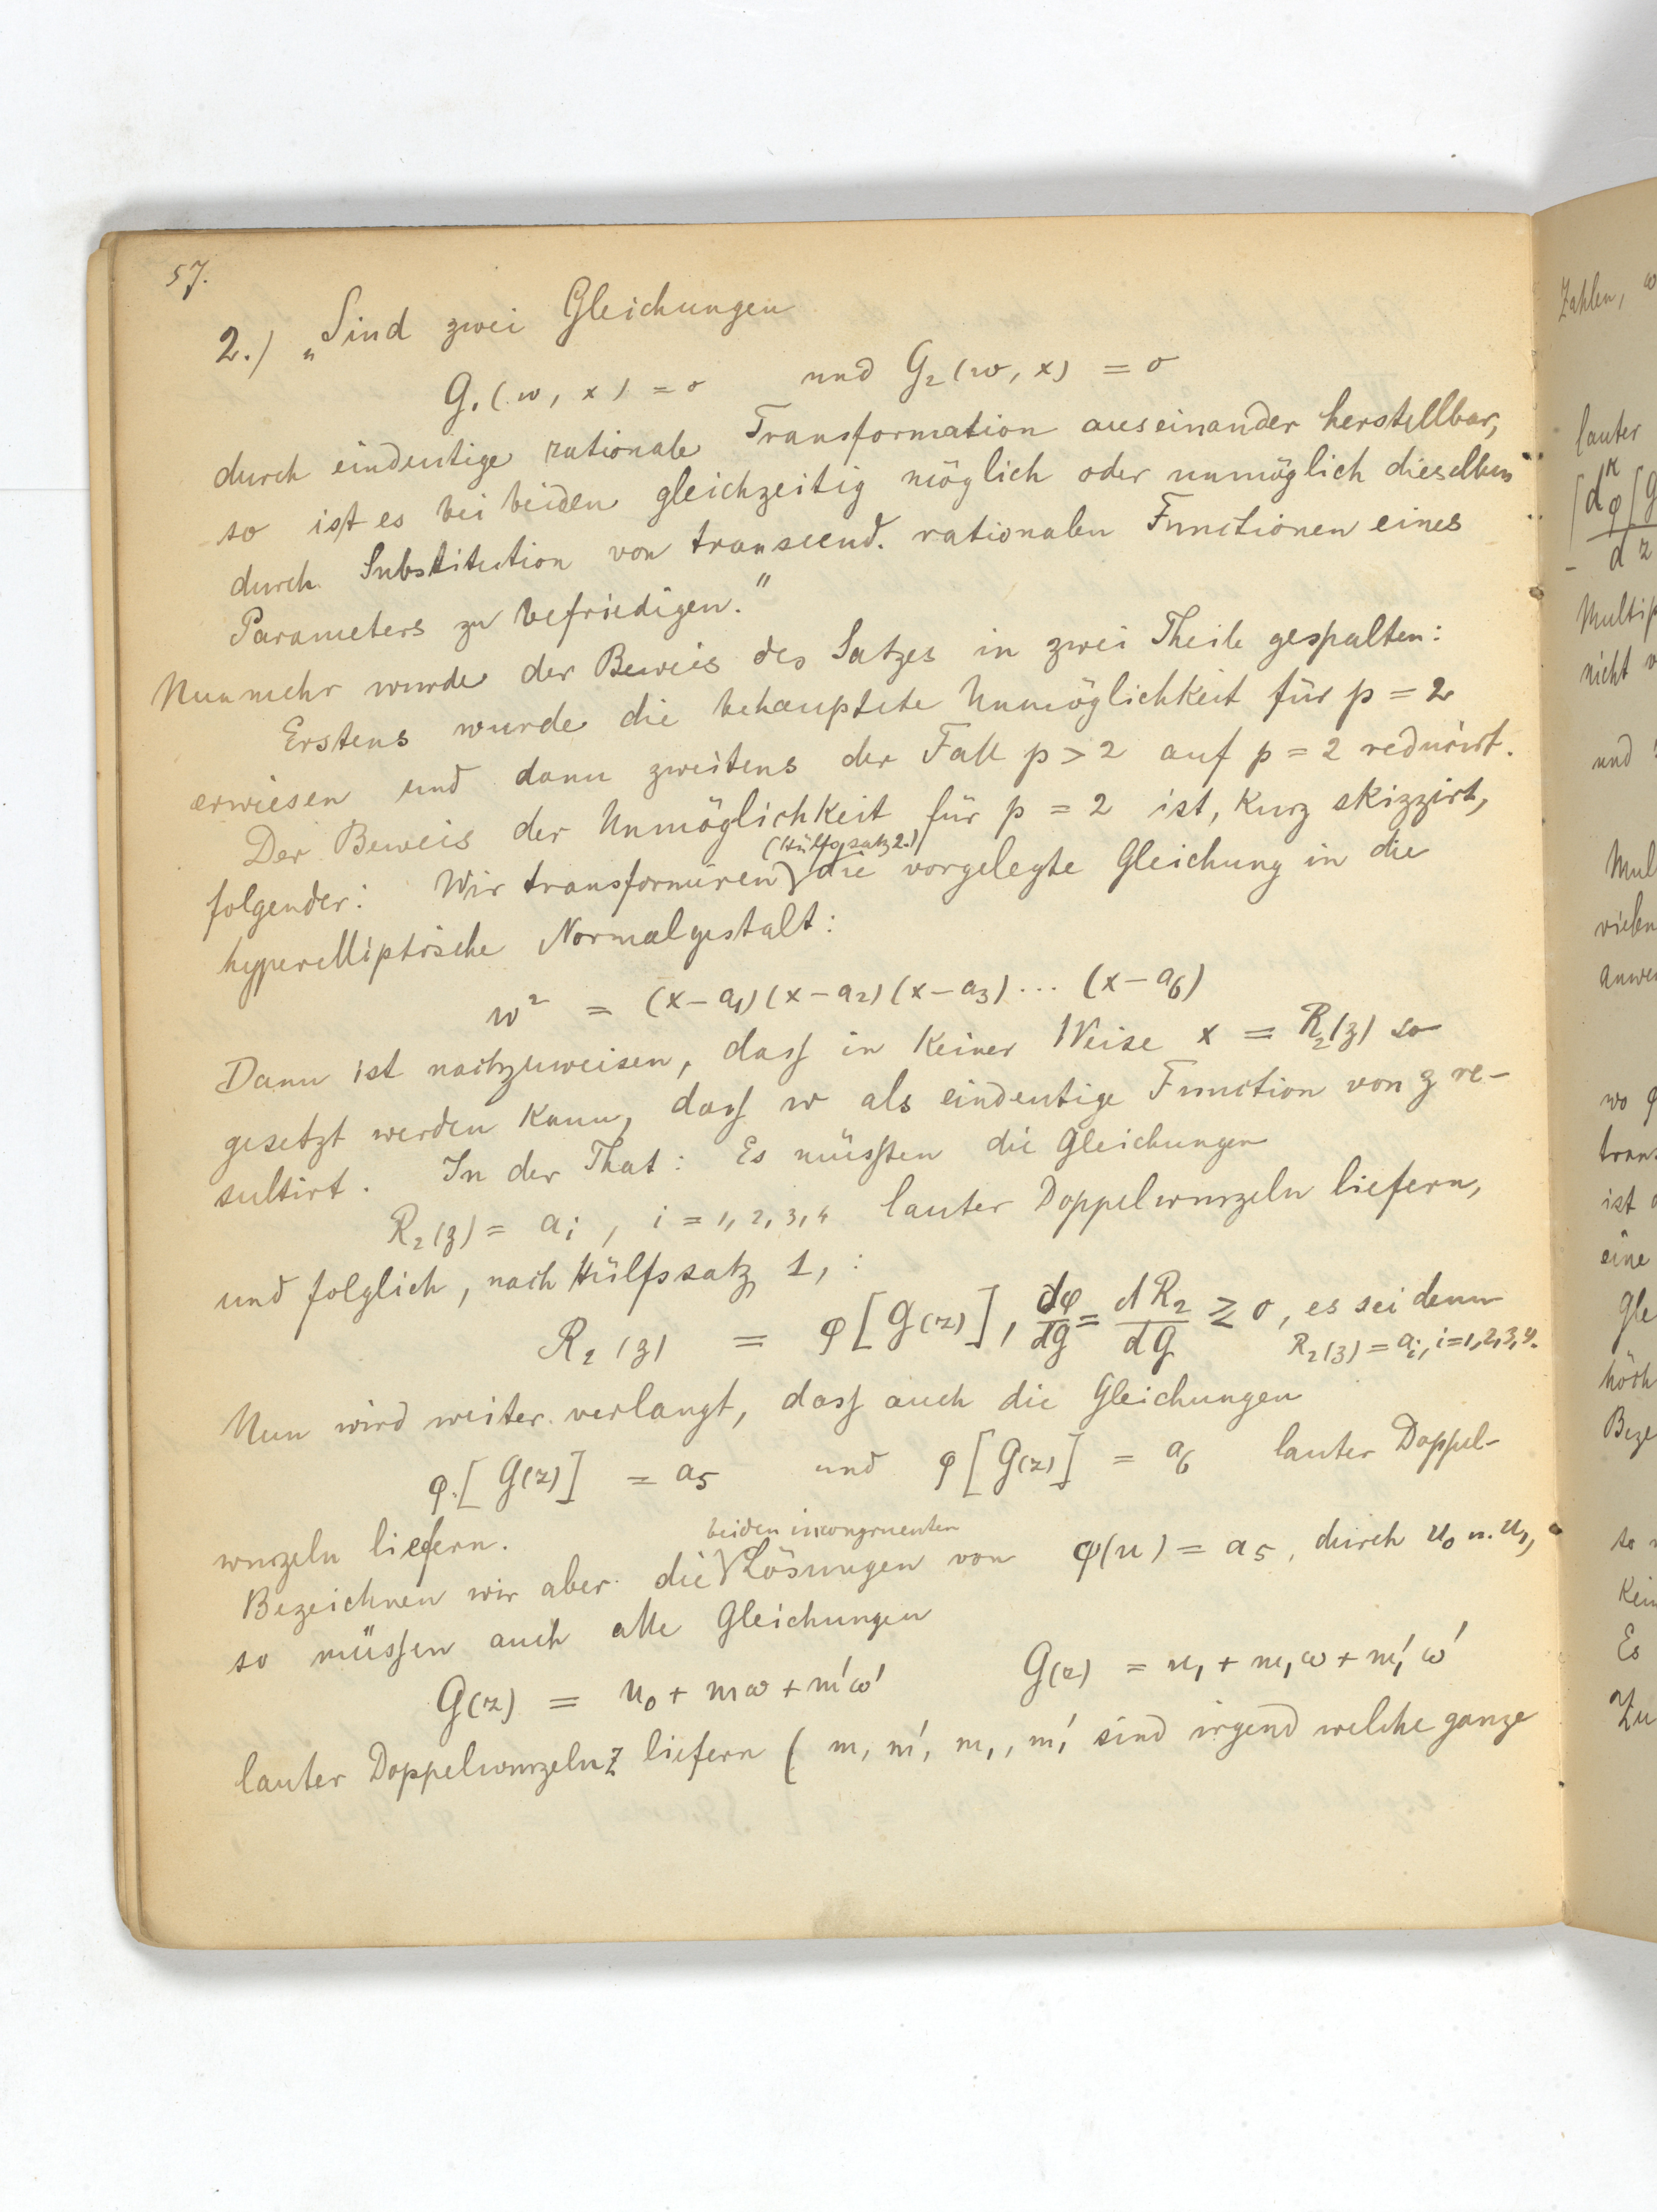 57.
2.) „Sind zwei Gleichungen
G₁(w, x) = 0 und G₂(w, x) = 0
durch eindeutige rationale Transformation auseinander herstellbar,
so ist es bei beiden gleichzeitig möglich oder unmöglich dieselben
durch Substitution von transcend. rationalen Functionen eines
Parameters zu befriedigen."
Nunmehr wurde der Beweis des Satzes in zwei Theile gespalten:
Erstens wurde die behauptete Unmöglichkeit für p = 2
erwiesen und dann zweitens der Fall p > 2 auf p = 2 reducirt.
Der Beweis der Unmöglichkeit für p = 2 ist, kurz skizzirt,
(Hülfssatz 2.)
folgender: Wir transformiren die vorgelegte Gleichung in die
hyperelliptische Normalgestalt:
w² = (x−a₁)(x−a₂)(x−a₃)... (x−a₆)
Dann ist nachzuweisen, dass in keiner Weise x = R₂(z) so
gesetzt werden kann, dass w als eindeutige Function von z re-
sultirt. In der That: Es müssten die Gleichungen
R₂(z) = aᵢ, i = 1, 2, 3, 4 lauter Doppelwurzeln liefern,
und folglich, nach Hülfssatz 1, :
R₂(z) = φ[G(z)], dφ/dG = dR₂/dG ≷ 0, es sei denn
R₂(z) = aᵢ, i=1,2,3,4.
Nun wird weiter verlangt, dass auch die Gleichungen
φ[G(z)] = a₅ und φ[G(z)] = a₆ lauter Doppel-
wurzeln liefern.
beiden incongruenten
Bezeichnen wir aber die Lösungen von φ(u) = a₅, durch u₀ u. u₁,
so müssen auch alle Gleichungen
G(z) = u₀ + mω + m'ω' G(z) = u₁ + m₁ω + m₁'ω'
lauter Doppelwurzeln z liefern ( m, m', m₁, m₁' sind irgend welche ganze
Zahlen,
lauter
nicht
und
wo
ist
eine
Es
Zu